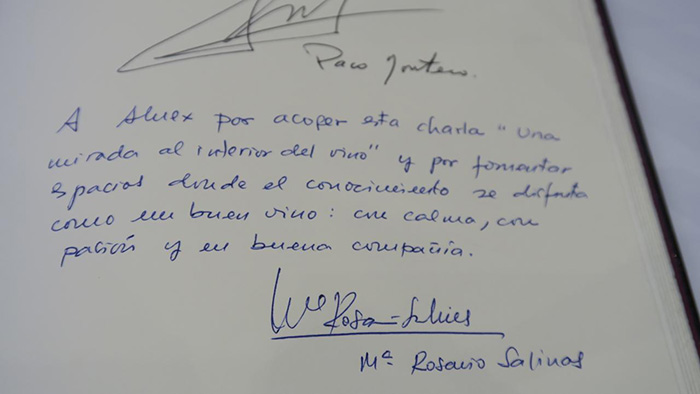 Paco Montero.
A Aluex por acoger esta charla "una
mirada al interior del vino" y por fomentar
espacios donde el conocimiento se disfruta
como un buen vino: con calma, con
pasión y en buena compañía.
Mª Rosa Salinas
Mª Rosario Salinas